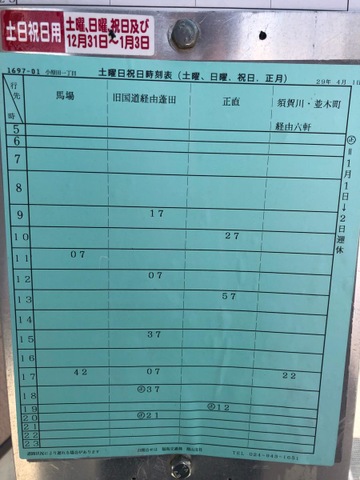 土日祝日用
土曜、日曜、祝日及び
12月31日～1月3日
1697-01 小原田一丁目
土曜日祝日時刻表(土曜、日曜、祝日、正月)
29年 4月
行先
時
馬場
旧国道経由蓬田
正直
須賀川・並木町
経由六軒
5
6
7
8
9 17
10 27
11 07
12 07
13 57
15 37
16
17 42 07 22
18 ㊣37
19 ㊣12
20 ㊣21
21
22
23
㊣=1月1日→2日運休
TEL 024-